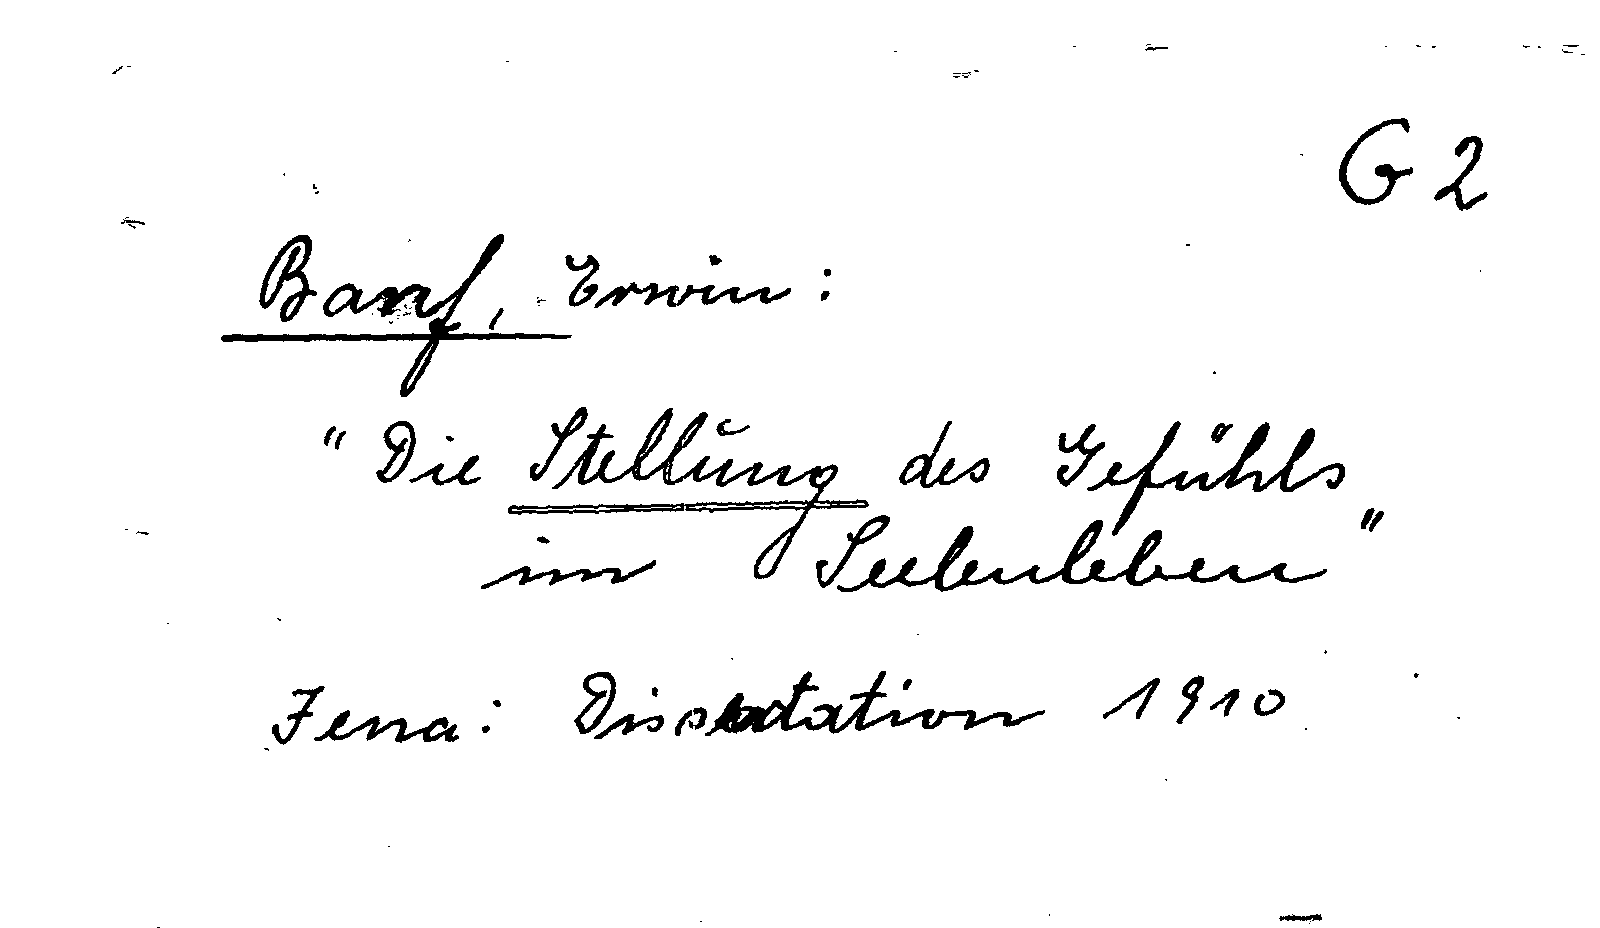 G 2
Banf, Erwin:
"Die Stellung des Gefühls
im Seelenleben"
Jena: Dissertation 1910